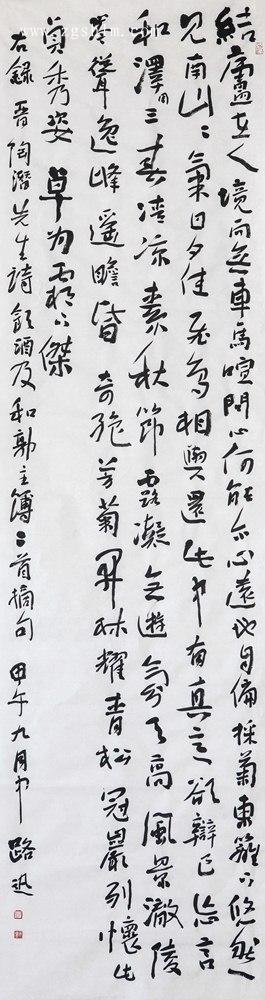 結廬在人境而無車馬喧問君何能尔心遠地自偏採菊東籬下悠然
見南山〻氣日夕佳飛鳥相與還此中有真意欲辯已忘言
和澤周三春清涼素秋節露凝無遊氛天高風景澈陵
岑聳逸峰遥瞻皆奇絶芳菊開林耀青松冠巖列懷此
貞秀姿卓為霜下傑
右錄晋陶潛先生詩飲酒及和郭主簿二首摘句甲午九月中路迅